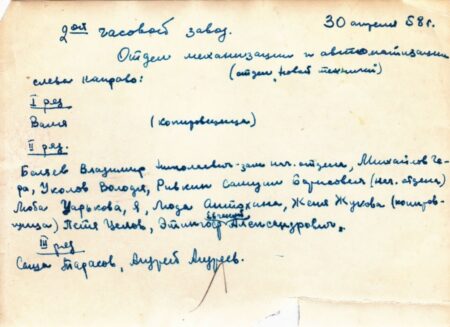 2ой часовой завод. 30 апреля 58 г.
Отдел механизации и автоматизации
слева направо: (отдел новой техники)
I ряд
Валя (копировщица)
II ряд.
Беляев Владимир Николаевич - зам. нач. отдела, Михайлов Ге-
ра, Уколов Володя, Ривкин Самуил Борисович (нач. отдела)
Люба Царькова, Я, Люда Женя Жукова (копиров-
щица) Петя Эйлингоф Евгений Александрович.
III ряд
Саша Тарасов, Андрей Андреев.